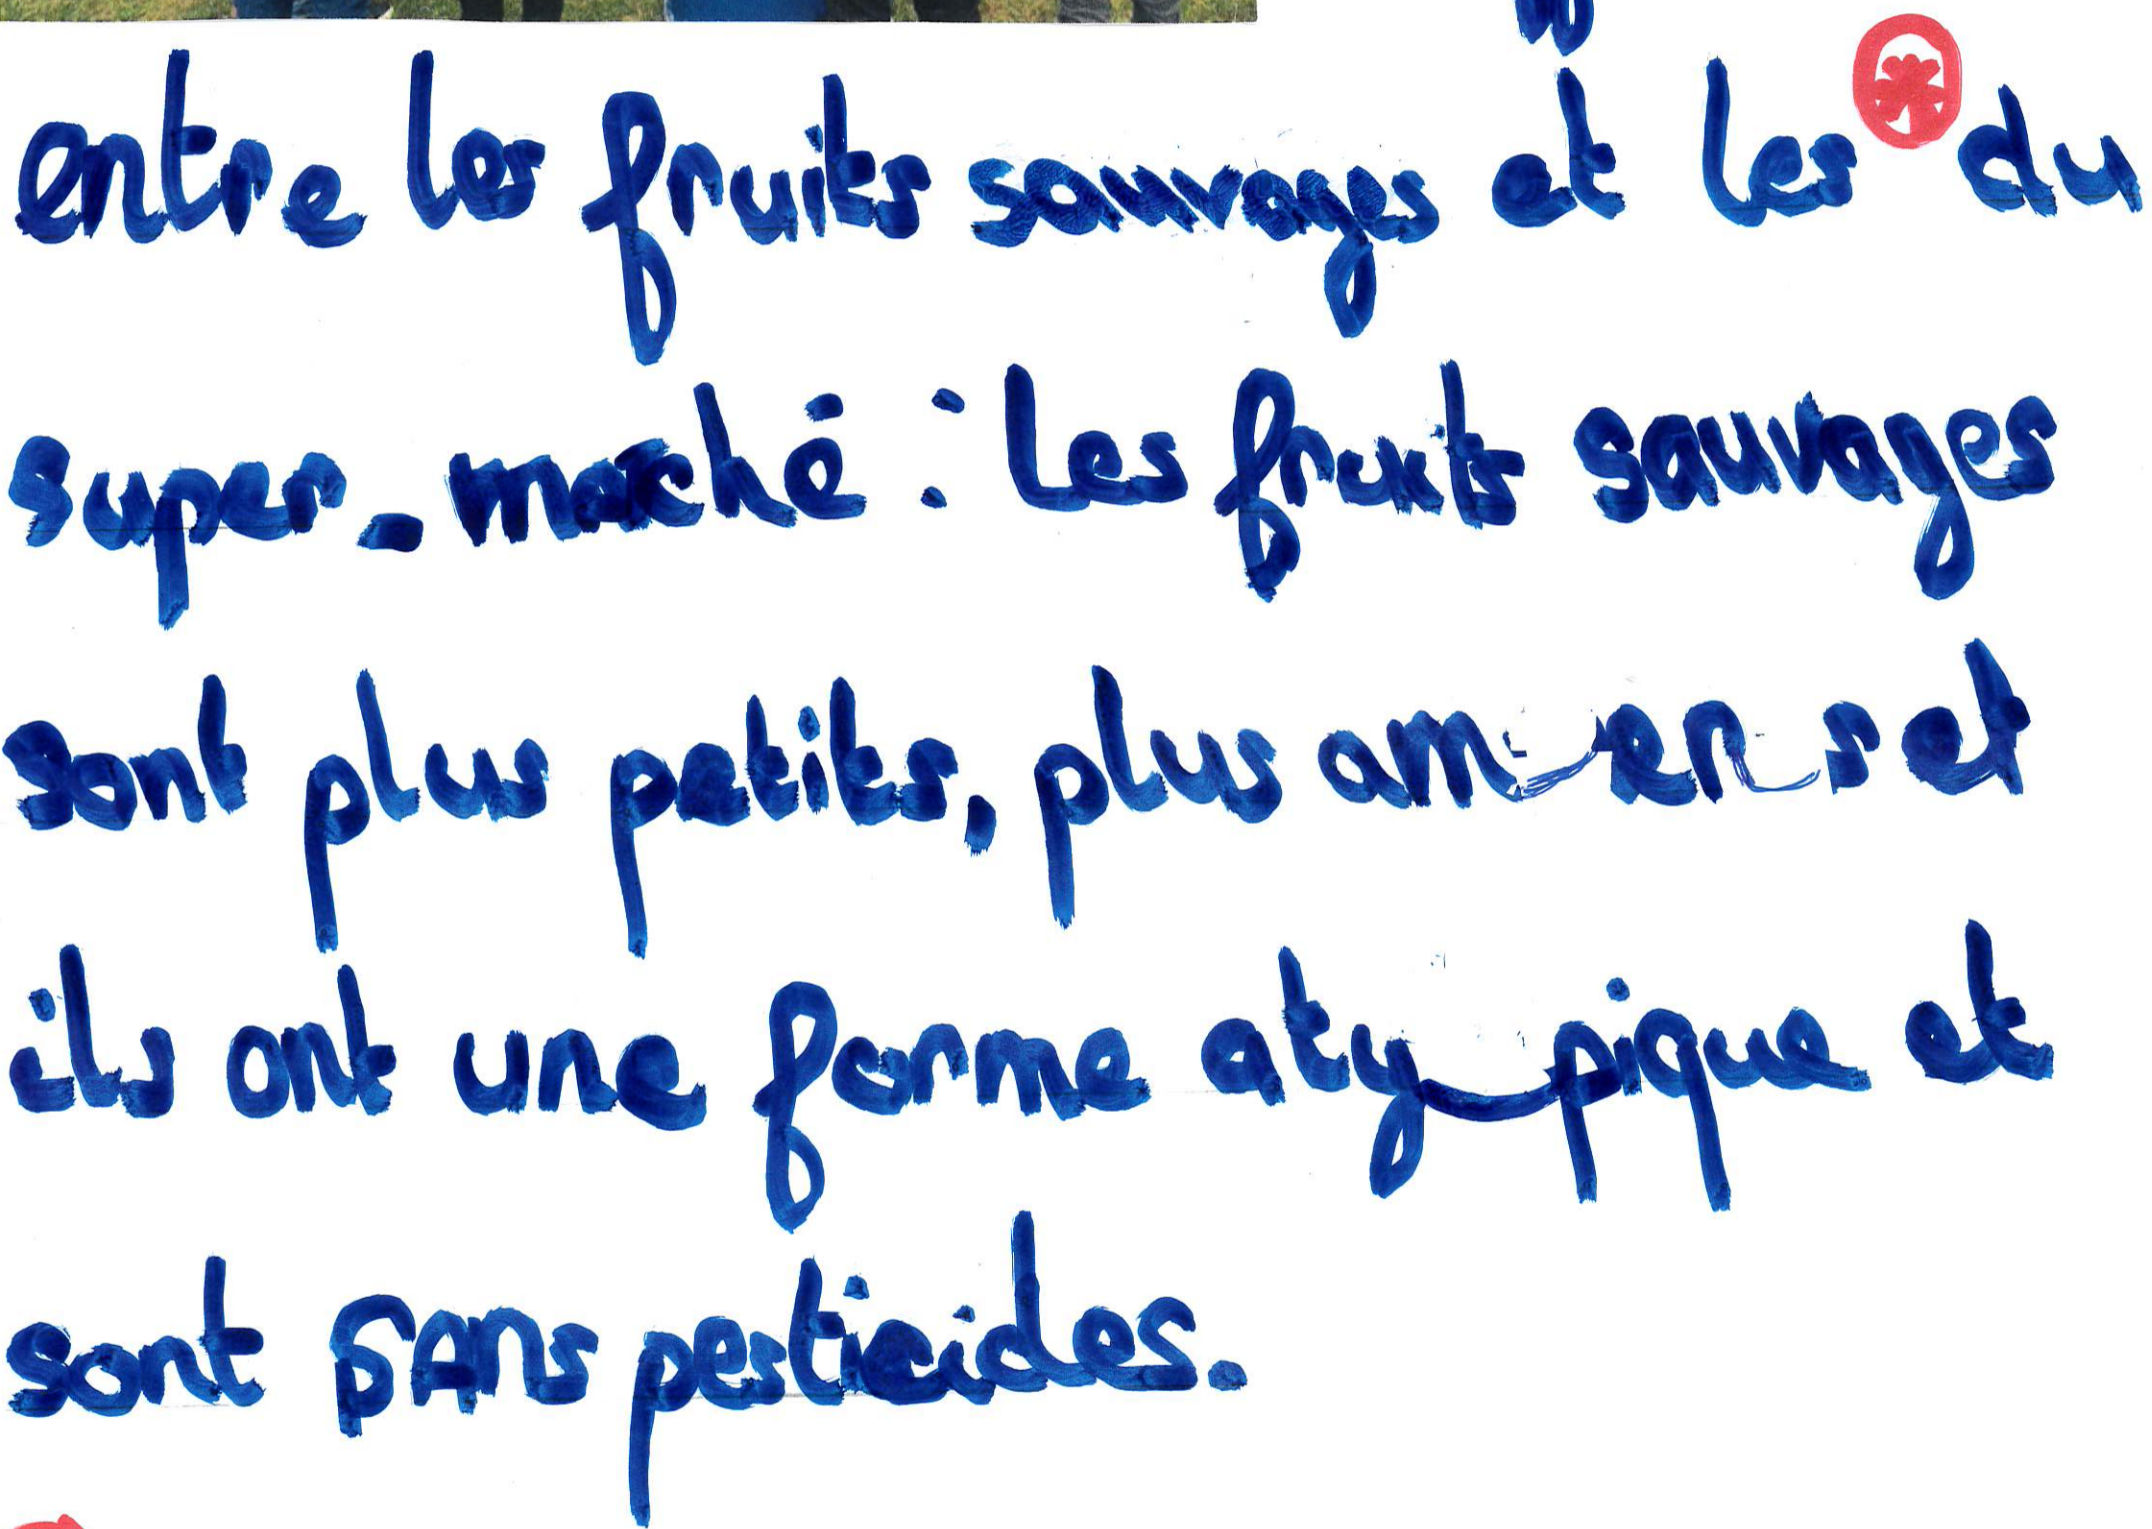 entre les fruits sauvages et les du
super-maché : les fruits sauvages
sont plus petits, plus amers et
ils ont une forme atypique et
sont sans pesticides.